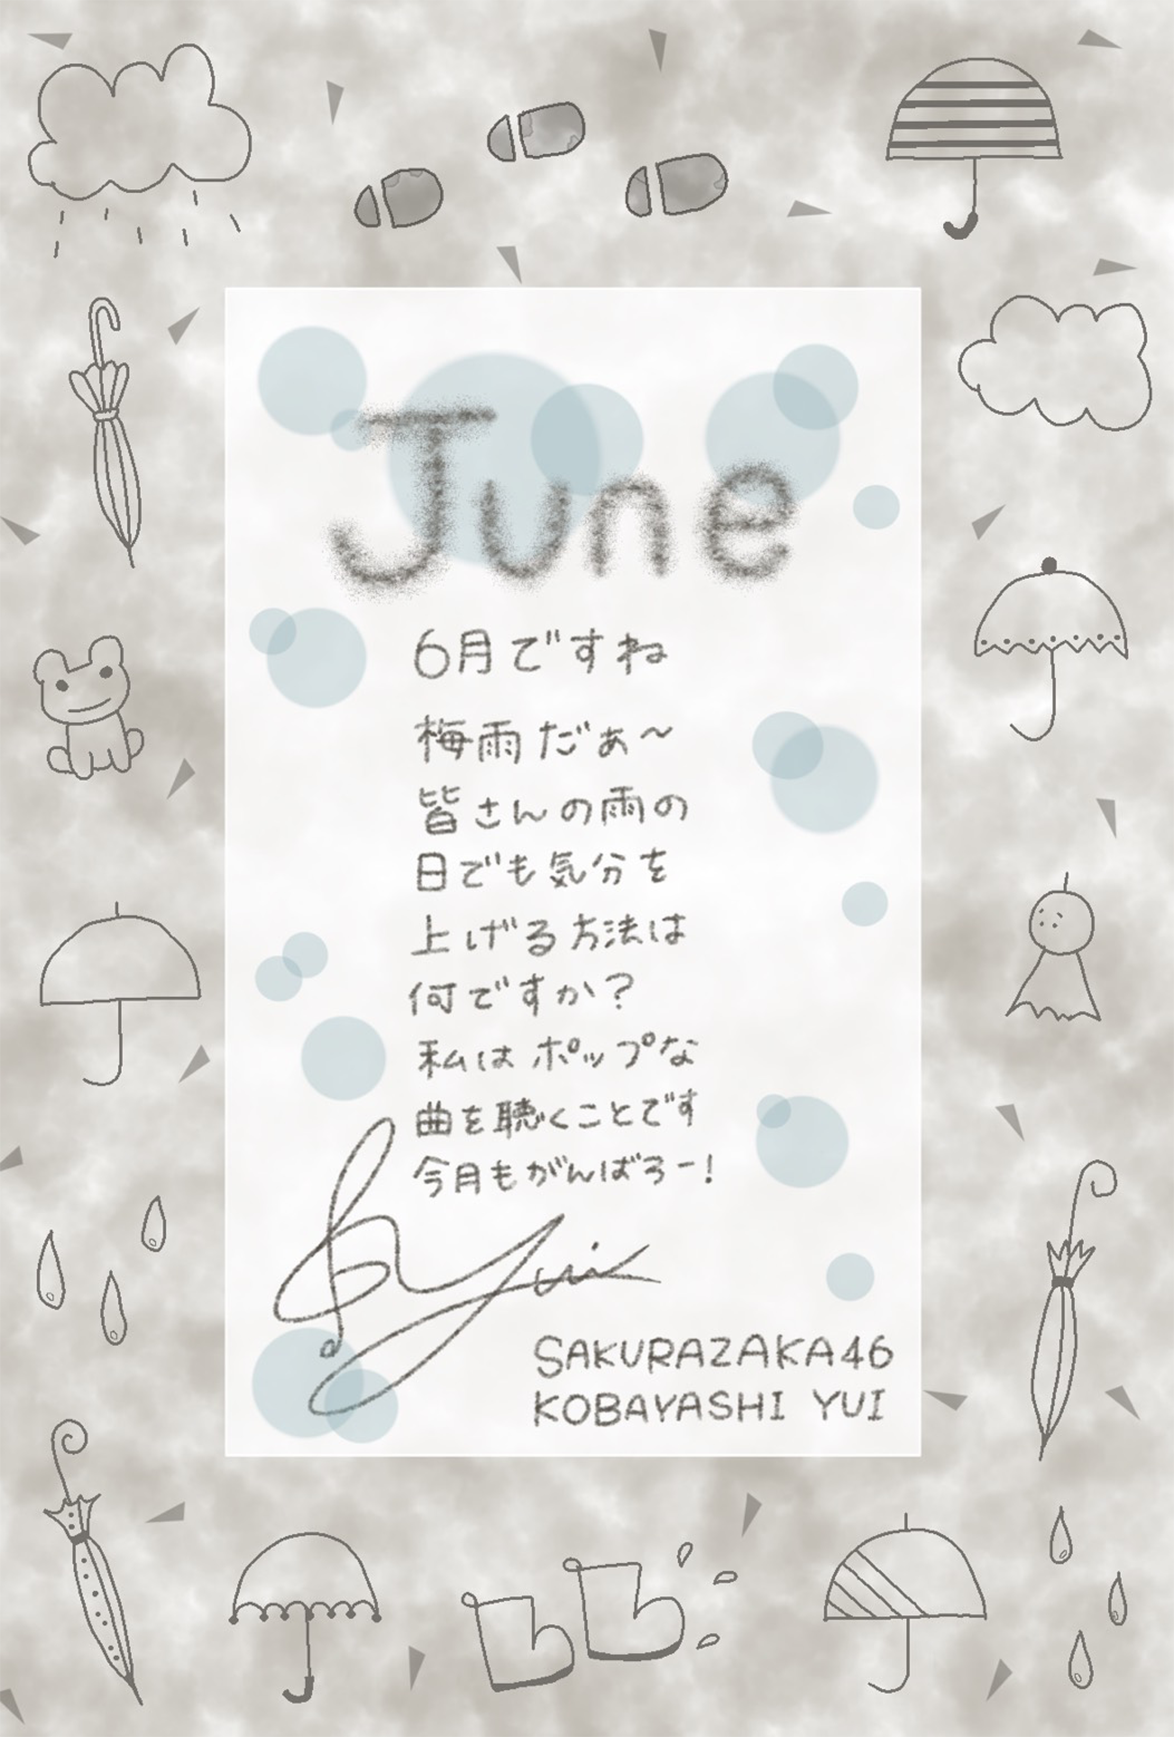 June
6月ですね
梅雨だぁ〜
皆さんの雨の
日でも気分を
上げる方法は
何ですか?
私はポップな
曲を聴くことです
今月もがんばろー!
Yui
SAKURAZAKA46
KOBAYASHI YUI